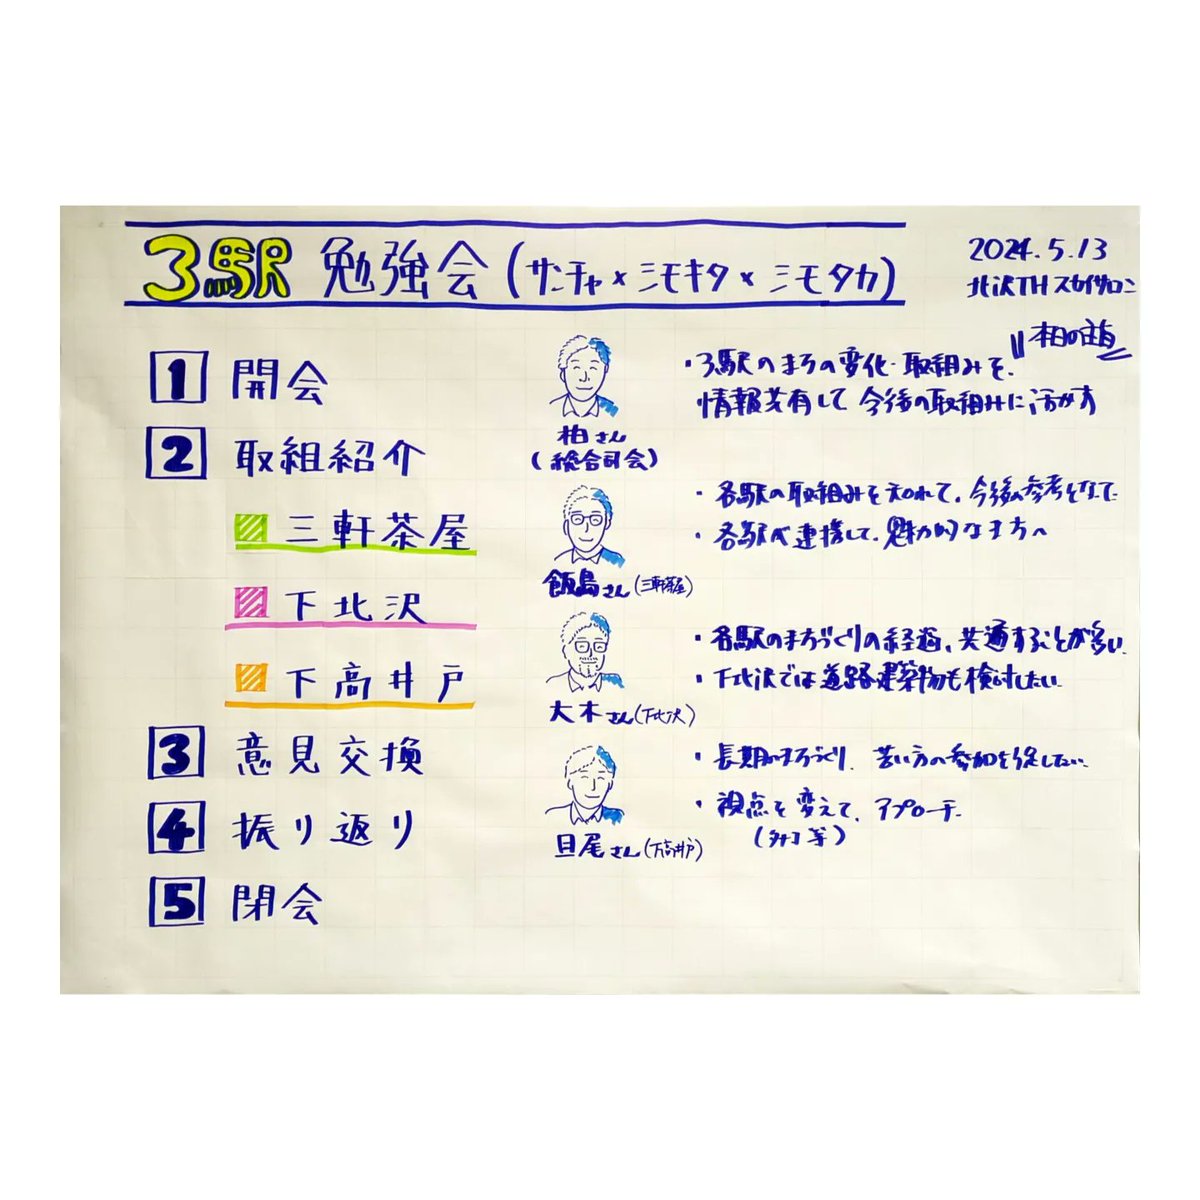 3駅 勉強会 (サンチャ×シモキタ×シモタカ)
2024.5.13
北沢TH スカイサロン
1 開会
2 取組紹介
三軒茶屋
下北沢
下高井戸
3 意見交換
4 振り返り
5 閉会
柏さん
(総合司会)
・3駅のまちの変化・取組みを、
情報共有して今後の取組みに活かす
飯島さん(三軒茶屋)
・各駅の取組みを知れて、今後の参考
・各駅が連携して、魅力的なまちへ
大木さん(下北沢)
・各駅のまちづくりの経過、共通することが多い
・下北沢では道路・建築物も検討したい
旦尾さん(下高井戸)
・長期のまちづくり、若い方の参加を促したい
・視点を変えて、アプローチ